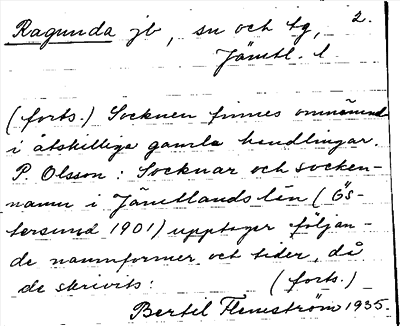 Ragunda jb, sn och tg, 2.
Jämtl. l
(forts.) Socknen finnes omnämnd
i åtskilliga gamla handlingar.
P. Olsson: Socknar och socken-
namn i Jämtlands län (Ös-
tersund 1901) upptager följan-
de namnformer och tider, då
de skrivits: (forts.)
Bertil Flemström 1935.